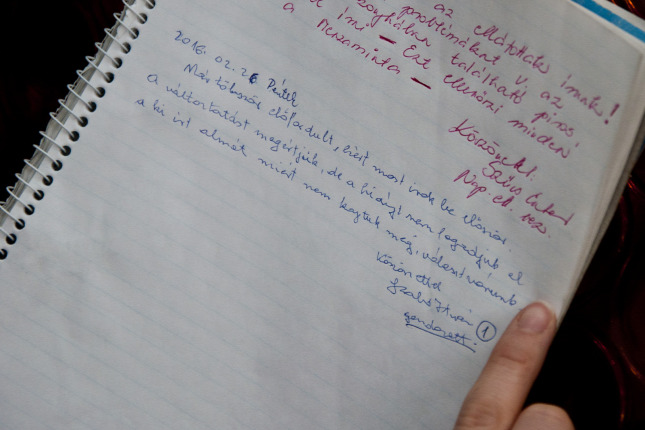 az ellátottak írnak!
problémáként v. az
konyhában található piros
írni — Ezt ellenőrzi minden
a mezaminta —
Köszönettel:
Szűcs
Nap. ell. vez.
2016. 02. 26 Péntek
Már többször előfordult, ezért most írok be először.
A változtatást megértjük, de a hiányt nem fogadjuk el
a ki írt almát miért nem kaptuk meg, választ várunk
Köszönettel
Szabó István ①
gondozott.